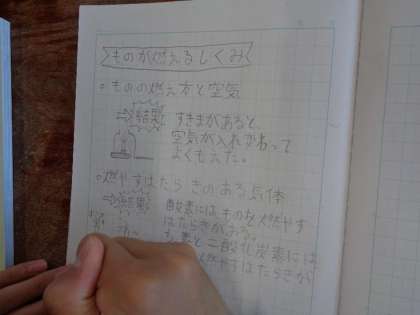 ものが燃えるしくみ
○ものの燃え方と空気
⇨結果 すきまがあると
空気が入れかわって
よくもえた。
○燃やすはたらきのある気体
⇨結果 酸素にはものを燃やす
はたらきがある。
素と二酸化炭素には
燃やすはたらきが